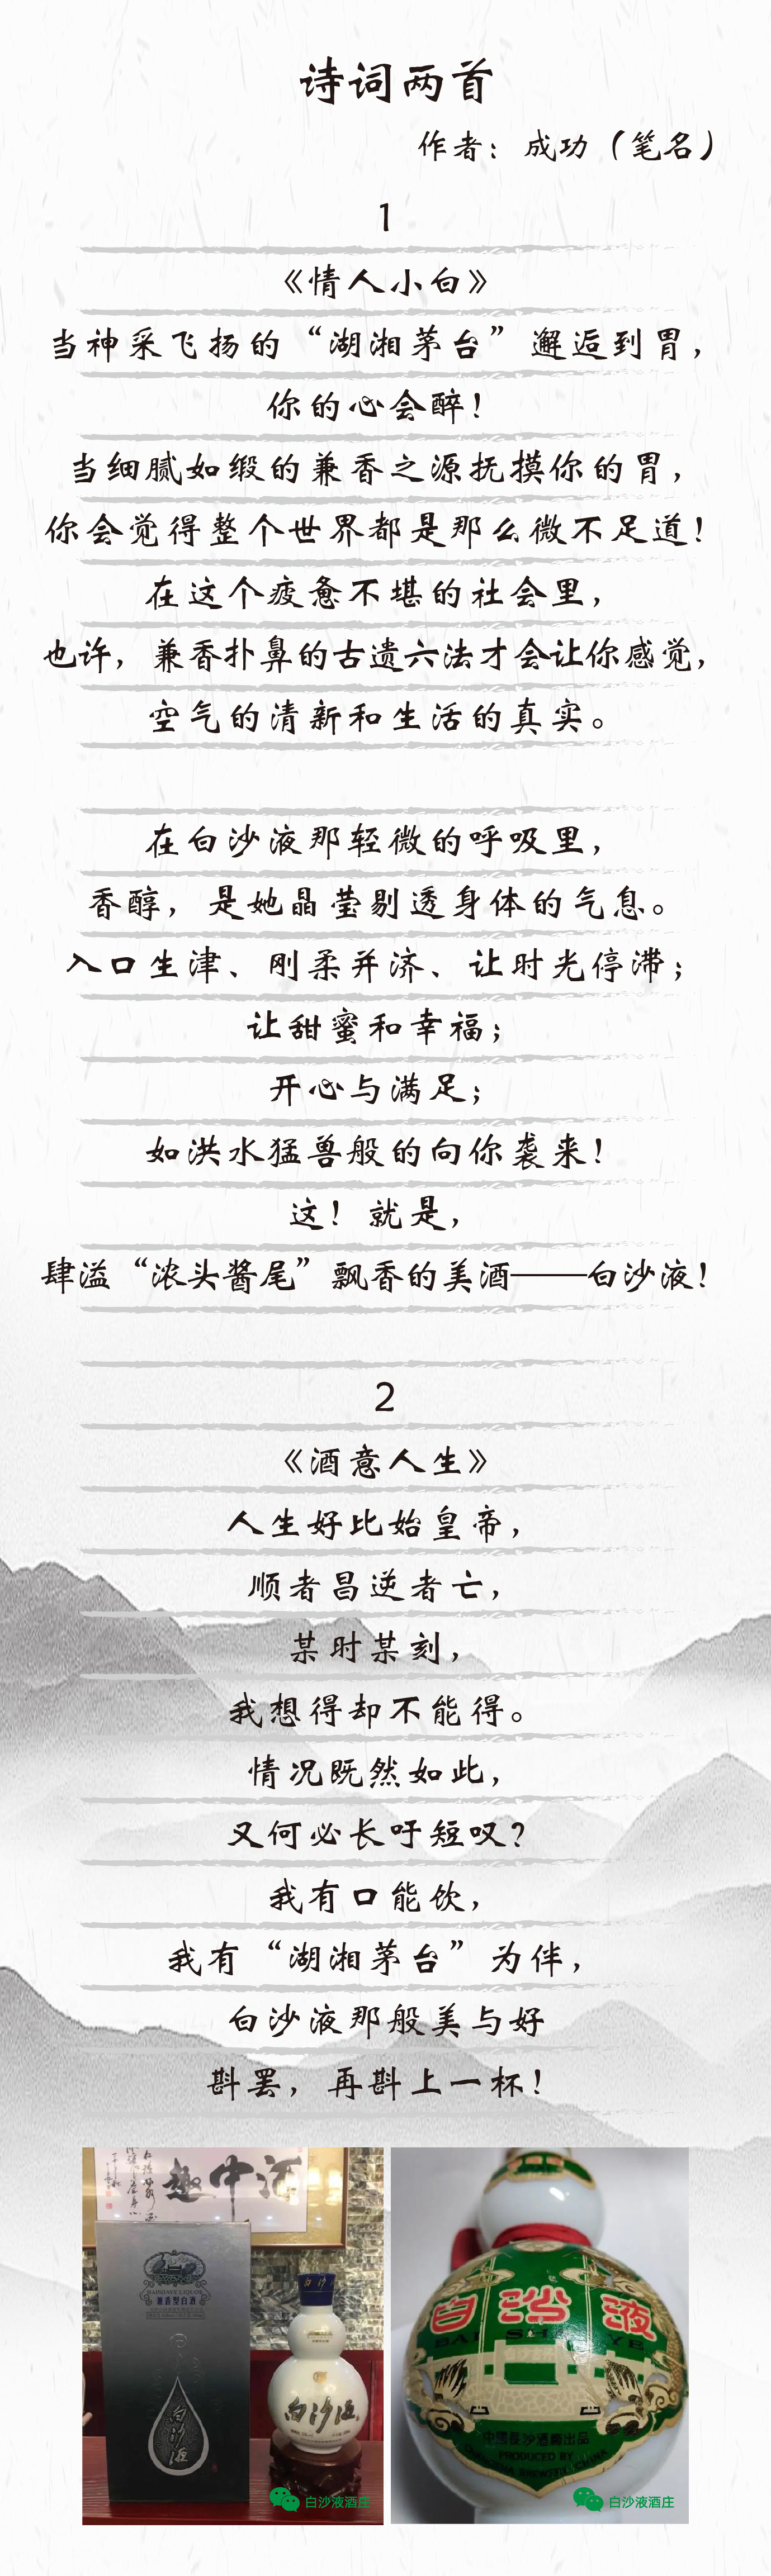 诗词两首
作者：成功（笔名）
1
《情人小白》
当神采飞扬的“湖湘茅台”邂逅到胃，
你的心会醉！
当细腻如缎的兼香之源抚摸你的胃，
你会觉得整个世界都是那么微不足道！
在这个疲惫不堪的社会里，
也许，兼香扑鼻的古遗六法才会让你感觉，
空气的清新和生活的真实。
在白沙液那轻微的呼吸里，
香醇，是她晶莹剔透身体的气息。
入口生津、刚柔并济、让时光停滞；
让甜蜜和幸福；
开心与满足；
如洪水猛兽般的向你袭来！
这！就是，
肆溢“浓头酱尾”飘香的美酒——白沙液！
2
《酒意人生》
人生好比始皇帝，
顺者昌逆者亡，
某时某刻，
我想得却不能得。
情况既然如此，
又何必长吁短叹？
我有口能饮，
我有“湖湘茅台”为伴，
白沙液那般美与好
斟罢，再斟上一杯！
趣中酒
BAISHAYE LIQUOR
兼香型白酒
白沙液
白沙液
白沙液
白沙液酒庄
白沙液
BAI SHA YE
中國長沙酒廠出品
PRODUCED BY
CHANGSHA BREWERY, CHINA
白沙液酒庄